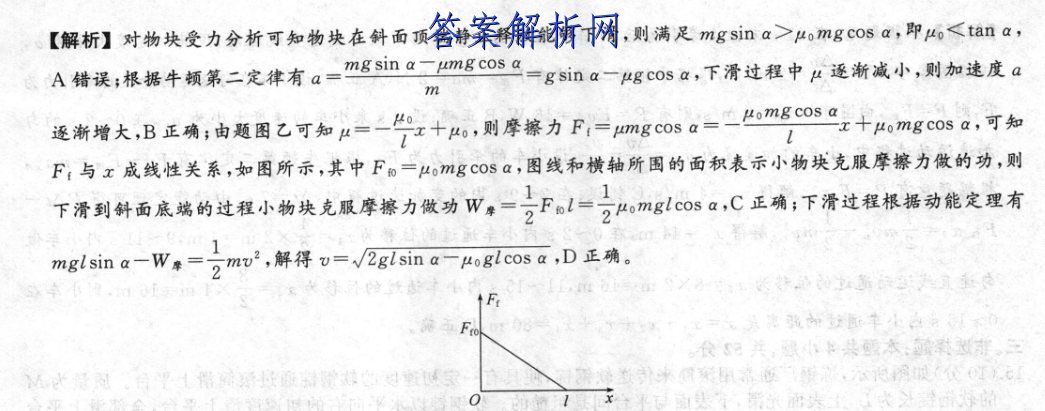 答案解析网
【解析】对物块受力分析可知物块在斜面顶端静止释放能够下滑,则满足 mgsin α>μ₀mgcos α,即μ₀≤tan α,
A 错误;根据牛顿第二定律有 a=(mgsin α−μmgcos α)/m=gsin α−μgcos α,下滑过程中 μ 逐渐减小,则加速度 a
逐渐增大,B 正确;由题图乙可知 μ=−(μ₀/l)x+μ₀,则摩擦力 Ff=μmgcos α=−(μ₀mgcos α/l)x+μ₀mgcos α,可知
Ff 与 x 成线性关系,如图所示,其中 Ff0=μ₀mgcos α,图线和横轴所围的面积表示小物块克服摩擦力做的功,则
下滑到斜面底端的过程小物块克服摩擦力做功 W摩=½Ff0l=½μ₀mglcos α,C 正确;下滑过程根据动能定理有
mglsin α−W摩=½mv²,解得 v=√(2glsin α−μ₀glcos α),D 正确。
Ff
Ff0
O l x